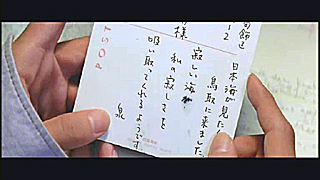 旬館え
2
様
POST
日本海が見たく
鳥取に来ました。
寂しい海
私の寂しさを
吸い取ってくれるようです
泉